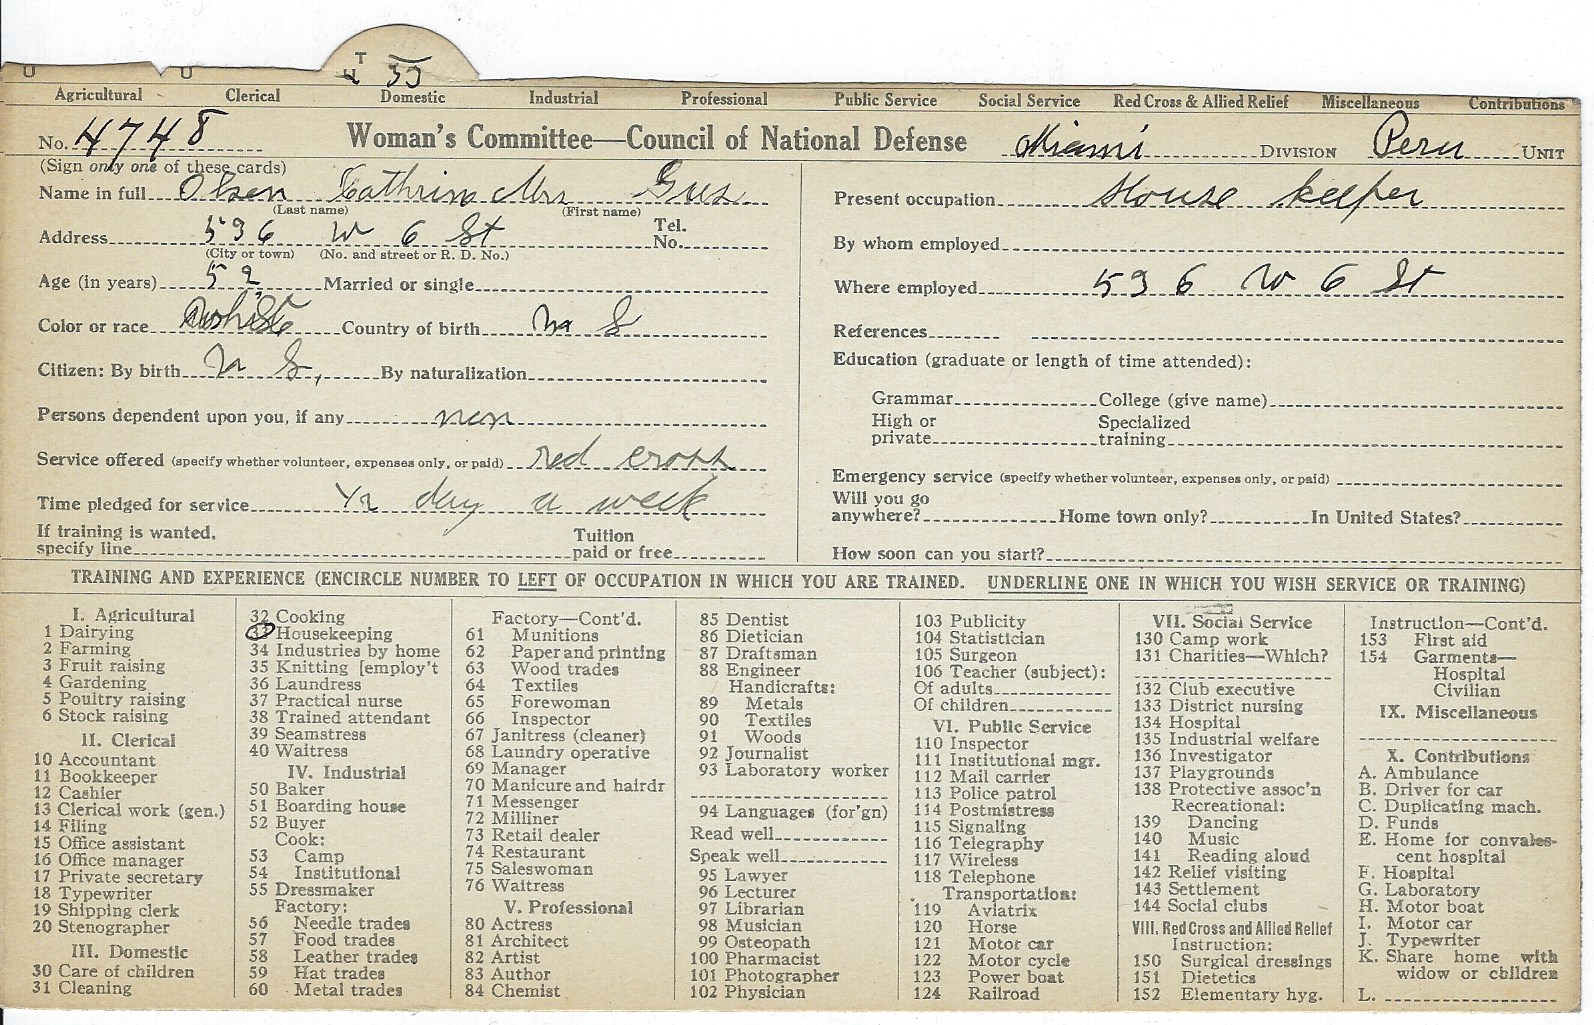 U U T U 33
Agricultural Clerical Domestic Industrial Professional Public Service Social Service Red Cross & Allied Relief Miscellaneous Contributions
No. 4748 Woman's Committee—Council of National Defense Miami DIVISION Peru UNIT
(Sign only one of these cards)
Name in full Olsen Cathrin Mrs Gus
(Last name) (First name)
Address 536 W 6 St Tel. No.
(City or town) (No. and street or R. D. No.)
Age (in years) 52 Married or single
Color or race White Country of birth U S
Citizen: By birth U S, By naturalization
Persons dependent upon you, if any non
Service offered (specify whether volunteer, expenses only, or paid) red cross
Time pledged for service 1/2 day a week
If training is wanted, specify line Tuition paid or free
Present occupation House keeper
By whom employed
Where employed 536 W 6 St
References
Education (graduate or length of time attended):
Grammar College (give name)
High or private Specialized training
Emergency service (specify whether volunteer, expenses only, or paid)
Will you go anywhere? Home town only? In United States?
How soon can you start?
TRAINING AND EXPERIENCE (ENCIRCLE NUMBER TO LEFT OF OCCUPATION IN WHICH YOU ARE TRAINED. UNDERLINE ONE IN WHICH YOU WISH SERVICE OR TRAINING)
I. Agricultural
1 Dairying
2 Farming
3 Fruit raising
4 Gardening
5 Poultry raising
6 Stock raising
II. Clerical
10 Accountant
11 Bookkeeper
12 Cashier
13 Clerical work (gen.)
14 Filing
15 Office assistant
16 Office manager
17 Private secretary
18 Typewriter
19 Shipping clerk
20 Stenographer
III. Domestic
30 Care of children
31 Cleaning
32 Cooking
33 Housekeeping
34 Industries by home
35 Knitting [employ't
36 Laundress
37 Practical nurse
38 Trained attendant
39 Seamstress
40 Waitress
IV. Industrial
50 Baker
51 Boarding house
52 Buyer
Cook:
53 Camp
54 Institutional
55 Dressmaker
Factory:
56 Needle trades
57 Food trades
58 Leather trades
59 Hat trades
60 Metal trades
Factory—Cont'd.
61 Munitions
62 Paper and printing
63 Wood trades
64 Textiles
65 Forewoman
66 Inspector
67 Janitress (cleaner)
68 Laundry operative
69 Manager
70 Manicure and hairdr
71 Messenger
72 Milliner
73 Retail dealer
74 Restaurant
75 Saleswoman
76 Waitress
V. Professional
80 Actress
81 Architect
82 Artist
83 Author
84 Chemist
85 Dentist
86 Dietician
87 Draftsman
88 Engineer
Handicrafts:
89 Metals
90 Textiles
91 Woods
92 Journalist
93 Laboratory worker
94 Languages (for'gn)
Read well
Speak well
95 Lawyer
96 Lecturer
97 Librarian
98 Musician
99 Osteopath
100 Pharmacist
101 Photographer
102 Physician
103 Publicity
104 Statistician
105 Surgeon
106 Teacher (subject):
Of adults
Of children
VI. Public Service
110 Inspector
111 Institutional mgr.
112 Mail carrier
113 Police patrol
114 Postmistress
115 Signaling
116 Telegraphy
117 Wireless
118 Telephone
Transportation:
119 Aviatrix
120 Horse
121 Motor car
122 Motor cycle
123 Power boat
124 Railroad
VII. Social Service
130 Camp work
131 Charities—Which?
132 Club executive
133 District nursing
134 Hospital
135 Industrial welfare
136 Investigator
137 Playgrounds
138 Protective assoc'n
Recreational:
139 Dancing
140 Music
141 Reading aloud
142 Relief visiting
143 Settlement
144 Social clubs
VIII. Red Cross and Allied Relief
Instruction:
150 Surgical dressings
151 Dietetics
152 Elementary hyg.
Instruction—Cont'd.
153 First aid
154 Garments—
Hospital
Civilian
IX. Miscellaneous
X. Contributions
A. Ambulance
B. Driver for car
C. Duplicating mach.
D. Funds
E. Home for convales-
cent hospital
F. Hospital
G. Laboratory
H. Motor boat
I. Motor car
J. Typewriter
K. Share home with
widow or children
L.